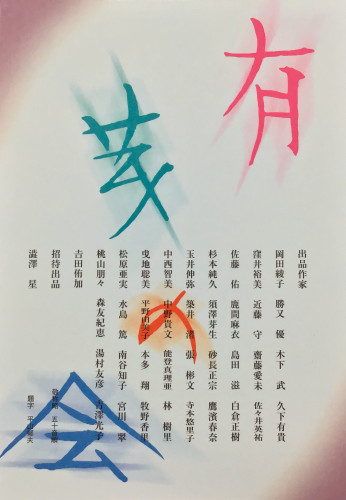 有芽の会
出品作家
岡田綾子 勝又 優 木下 武 久下有貴
窪井裕美 近藤 守 齋藤愛未 佐々井英祐
佐藤 佑 鹿間麻衣 島田 滋 白倉正樹
杉本純久 須澤芽生 砂長正宗 鷹濱春奈
玉井伸弥 築井 渚 張 彬文 寺本悠里子
中西智美 中野貴文 能登真理亜 林 樹里
曵地聡美 平野由美子 本多 翔 牧野香里
松原亜実 水島 篤 南谷知子 宮川 翠
桃山朋々 森友紀恵 湯村友彦 吉澤光子
吉田侑加
招待出品
澁澤 星
敬称略 五十音順
題字 平山郁夫